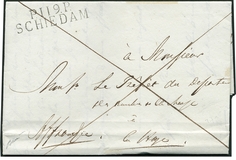 P.119.P.
SCHIEDAM
à Monsieur
Le Préfet du Departe
des bouches de la Meuse
à
La Haye